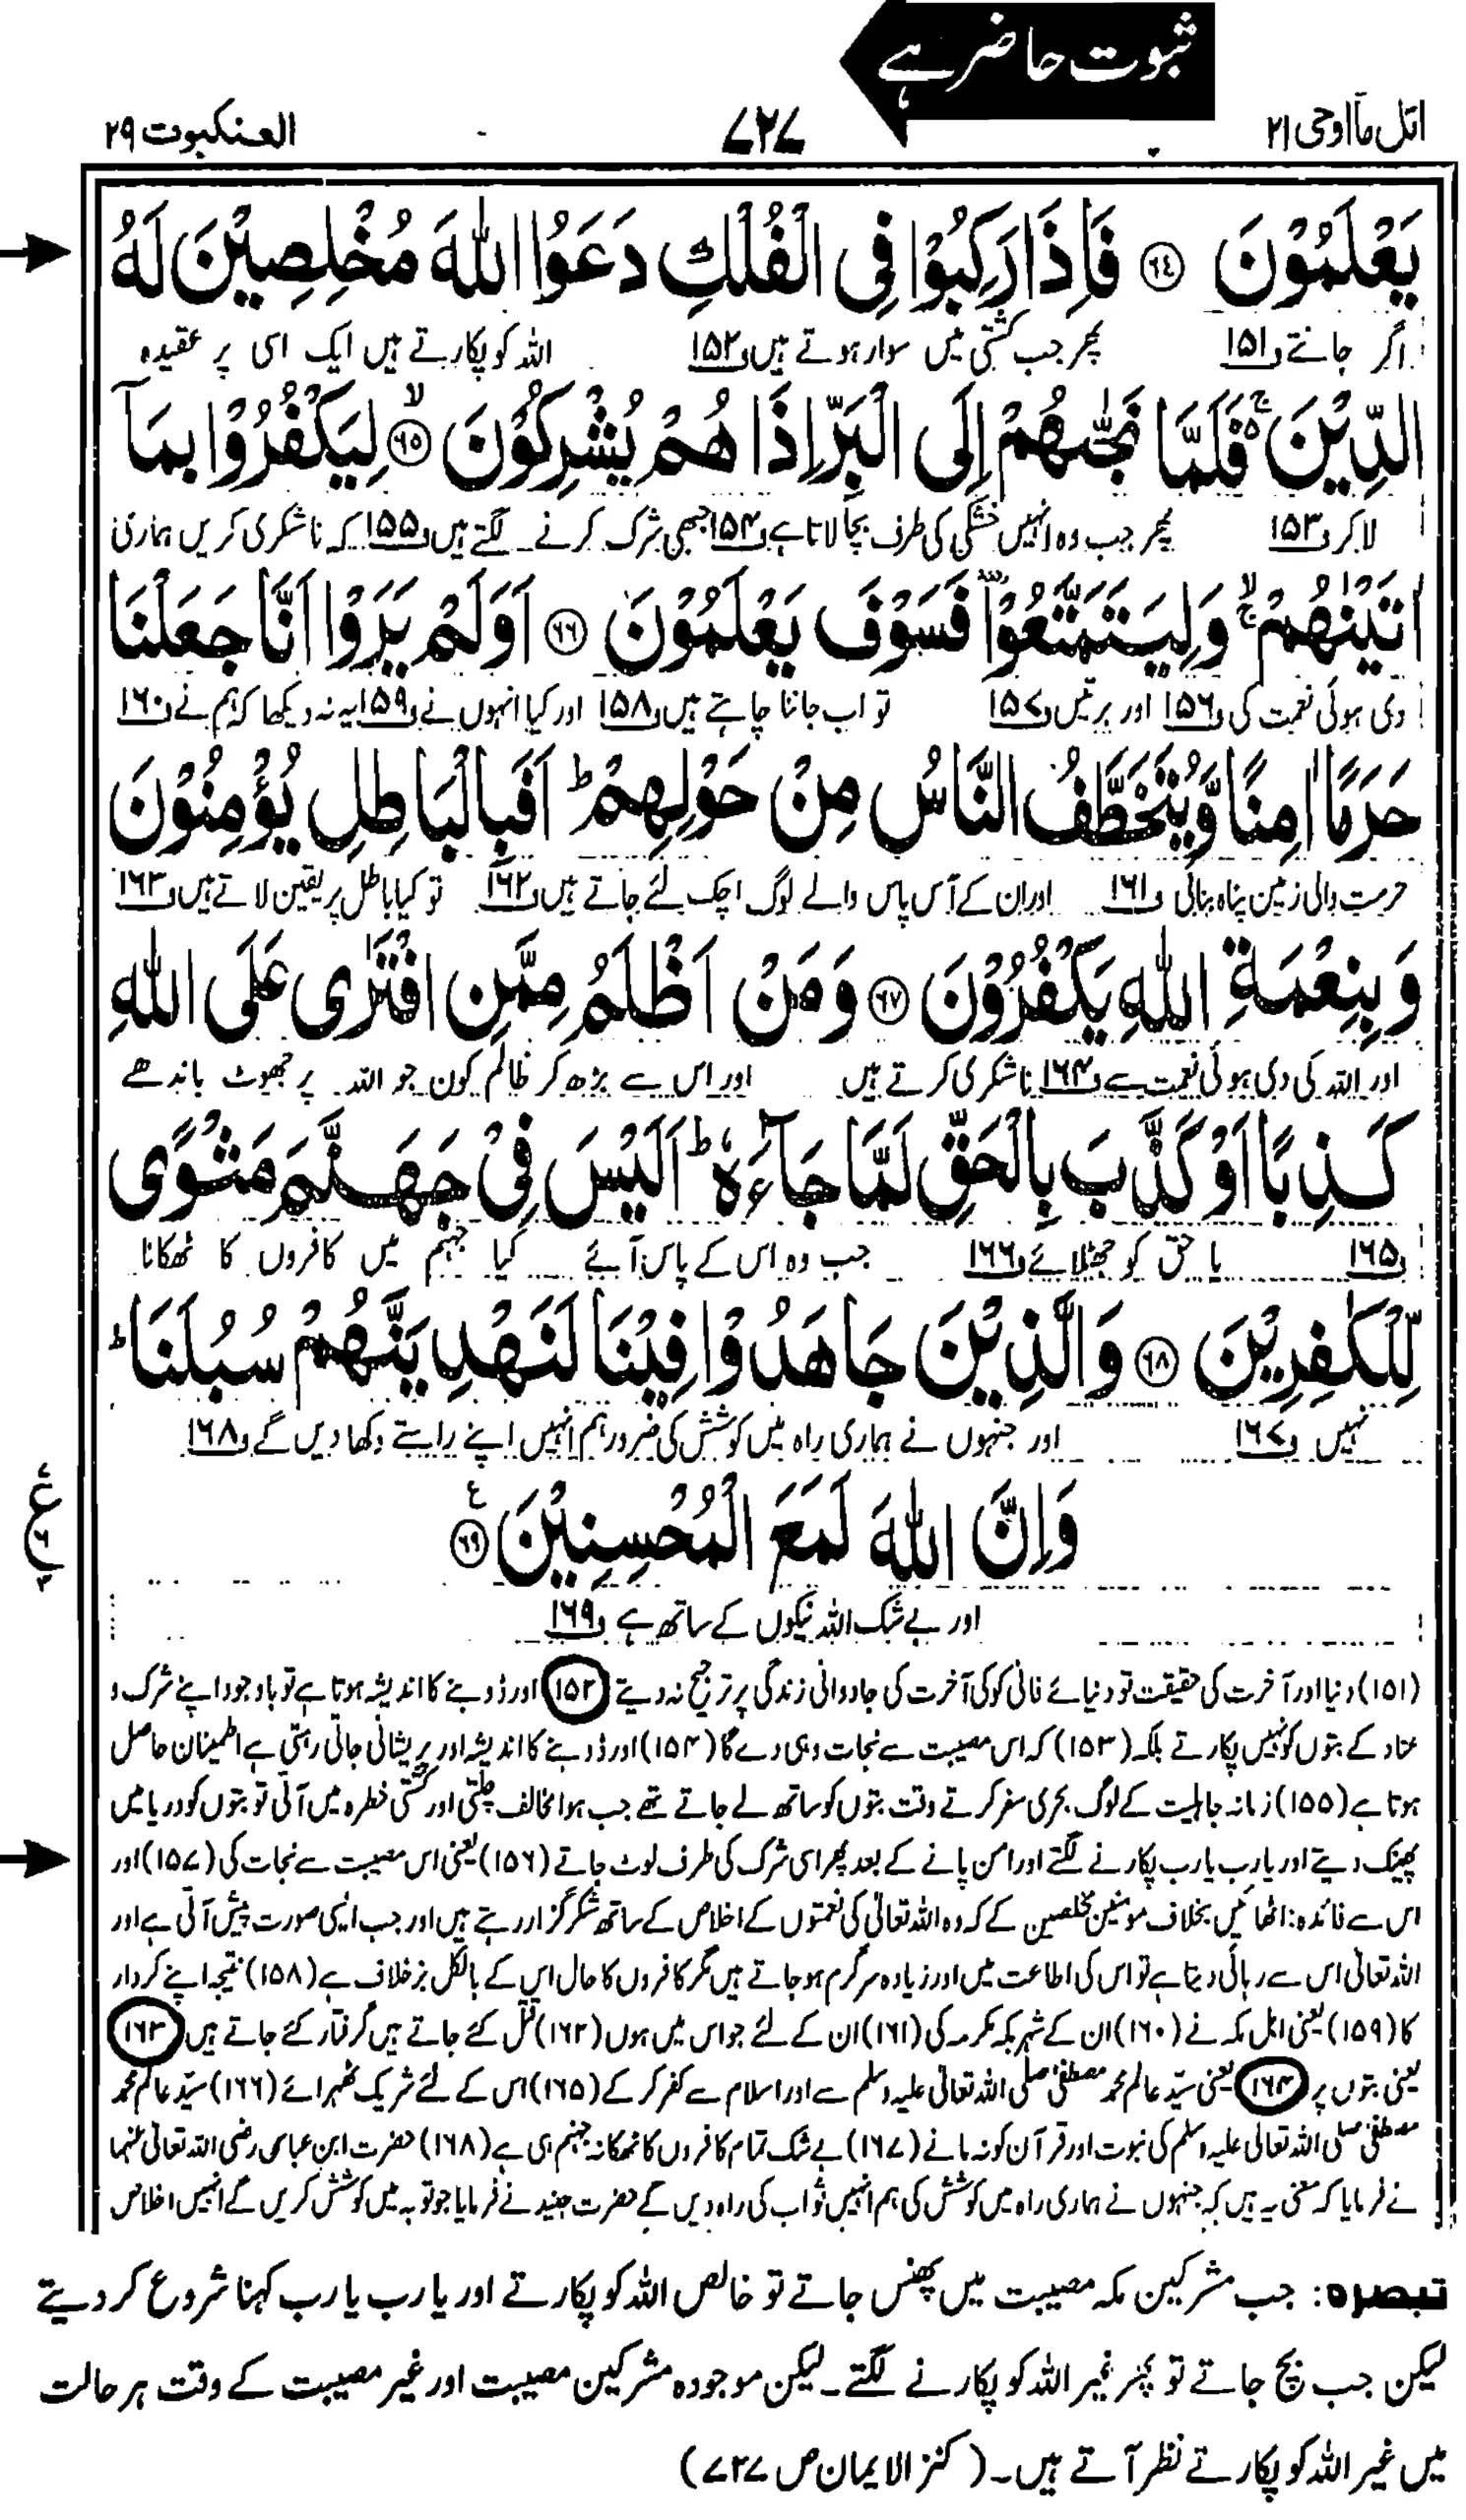 ثبوت حاضر ہے
اتل مآاوحی ۲۱ ۷۲۷ العنکبوت ۲۹
يَعْلَمُوْنَ ﴿۶۴﴾ فَاِذَا رَكِبُوْا فِى الْفُلْكِ دَعَوُا اللّٰهَ مُخْلِصِيْنَ لَهُ
اگر جانتے و۱۵۱ پھر جب کشتی میں سوار ہوتے ہیں و۱۵۲ اللہ کو پکارتے ہیں ایک اسی پر عقیدہ
الدِّيْنَ ۚ۬ فَلَمَّا نَجّٰىهُمْ اِلَى الْبَرِّ اِذَا هُمْ يُشْرِكُوْنَ ﴿۶۵﴾ۙ لِيَكْفُرُوْا بِمَآ
لا کر و۱۵۳ پھر جب وہ انہیں خشکی کی طرف بچا لاتا ہے و۱۵۴ جبھی شرک کرنے لگتے ہیں و۱۵۵ کہ ناشکری کریں ہماری
اٰتَيْنٰهُمْ ۙۚ وَلِيَتَمَتَّعُوْا ۥ فَسَوْفَ يَعْلَمُوْنَ ﴿۶۶﴾ اَوَلَمْ يَرَوْا اَنَّا جَعَلْنَا
دی ہوئی نعمت کی و۱۵۶ اور برتیں و۱۵۷ تو اب جانا چاہتے ہیں و۱۵۸ اور کیا انہوں نے و۱۵۹ یہ نہ دیکھا کہ ہم نے و۱۶۰
حَرَمًا اٰمِنًا وَّيُتَخَطَّفُ النَّاسُ مِنْ حَوْلِهِمْ ؕ اَفَبِالْبَاطِلِ يُؤْمِنُوْنَ
حرمت والی زمین پناہ بنائی و۱۶۱ اور ان کے آس پاس والے لوگ اچک لئے جاتے ہیں و۱۶۲ تو کیا باطل پر یقین لاتے ہیں و۱۶۳
وَبِنِعْمَةِ اللّٰهِ يَكْفُرُوْنَ ﴿۶۷﴾ وَمَنْ اَظْلَمُ مِمَّنِ افْتَرٰى عَلَى اللّٰهِ
اور اللہ کی دی ہوئی نعمت سے و۱۶۴ ناشکری کرتے ہیں اور اس سے بڑھ کر ظالم کون جو اللہ پر جھوٹ باندھے
كَذِبًا اَوْ كَذَّبَ بِالْحَقِّ لَمَّا جَآءَهٗ ؕ اَلَيْسَ فِىْ جَهَنَّمَ مَثْوًى
و۱۶۵ یا حق کو جھٹلائے و۱۶۶ جب وہ اس کے پاس آئے کیا جہنم میں کافروں کا ٹھکانا
لِّلْكٰفِرِيْنَ ﴿۶۸﴾ وَالَّذِيْنَ جَاهَدُوْا فِيْنَا لَنَهْدِيَنَّهُمْ سُبُلَنَا ؕ
نہیں و۱۶۷ اور جنہوں نے ہماری راہ میں کوشش کی ضرور ہم انہیں اپنے راستے دکھا دیں گے و۱۶۸
وَاِنَّ اللّٰهَ لَمَعَ الْمُحْسِنِيْنَ ﴿۶۹﴾ ع
اور بے شک اللہ نیکوں کے ساتھ ہے و۱۶۹
(۱۵۱) دنیا اور آخرت کی حقیقت تو دنیائے فانی کو کی آخرت کی جاودانی زندگی پر ترجیح نہ دیتے (۱۵۲) اور ڈوبنے کا اندیشہ ہوتا ہے تو باوجود اپنے شرک و
عناد کے بتوں کو نہیں پکارتے بلکہ (۱۵۳) کہ اس مصیبت سے نجات وہی دے گا (۱۵۴) اور ڈوبنے کا اندیشہ اور پریشانی جاتی رہتی ہے اطمینان حاصل
ہوتا ہے (۱۵۵) زمانہ جاہلیت کے لوگ بحری سفر کرتے وقت بتوں کو ساتھ لے جاتے تھے جب ہوا مخالف چلتی اور کشتی خطرہ میں آتی تو بتوں کو دریا میں
پھینک دیتے اور یارب یارب پکارنے لگتے اور امن پانے کے بعد پھر اسی شرک کی طرف لوٹ جاتے (۱۵۶) یعنی اس مصیبت سے نجات کی (۱۵۷) اور
اس سے فائدہ اٹھائیں بخلاف مومنین مخلصین کے کہ وہ اللہ تعالی کی نعمتوں کے اخلاص کے ساتھ شکر گزار رہتے ہیں اور جب ایسی صورت پیش آتی ہے اور
اللہ تعالی اس سے رہائی دیتا ہے تو اس کی اطاعت میں اور زیادہ سرگرم ہو جاتے ہیں مگر کافروں کا حال اس کے بالکل برخلاف ہے (۱۵۸) نتیجہ اپنے کردار
کا (۱۵۹) یعنی اہل مکہ نے (۱۶۰) ان کے شہر مکہ مکرمہ کی (۱۶۱) ان کے لئے جو اس میں ہوں (۱۶۲) قتل کئے جاتے ہیں گرفتار کئے جاتے ہیں (۱۶۳)
یعنی بتوں پر (۱۶۴) یعنی سید عالم محمد مصطفی صلی اللہ تعالی علیہ وسلم سے اور اسلام سے کفر کر کے (۱۶۵) اس کے لئے شریک ٹھہرائے (۱۶۶) سید عالم محمد
مصطفی صلی اللہ تعالی علیہ وسلم کی نبوت اور قرآن کو نہ مانے (۱۶۷) بے شک تمام کافروں کا ٹھکانہ جہنم ہی ہے (۱۶۸) حضرت ابن عباس رضی اللہ تعالی عنہما
نے فرمایا کہ معنی یہ ہیں کہ جنہوں نے ہماری راہ میں کوشش کی ہم انہیں ثواب کی راہ دیں گے حضرت جنید نے فرمایا جو توبہ میں کوشش کریں گے انہیں اخلاص
تبصرہ: جب مشرکین مکہ مصیبت میں پھنس جاتے تو خالص اللہ کو پکارتے اور یارب یارب کہنا شروع کر دیتے
لیکن جب بچ جاتے تو پھر غیر اللہ کو پکارنے لگتے۔ لیکن موجودہ مشرکین مصیبت اور غیر مصیبت کے وقت ہر حالت
میں غیر اللہ کو پکارتے نظر آتے ہیں۔ (کنز الایمان ص ۷۲۷)